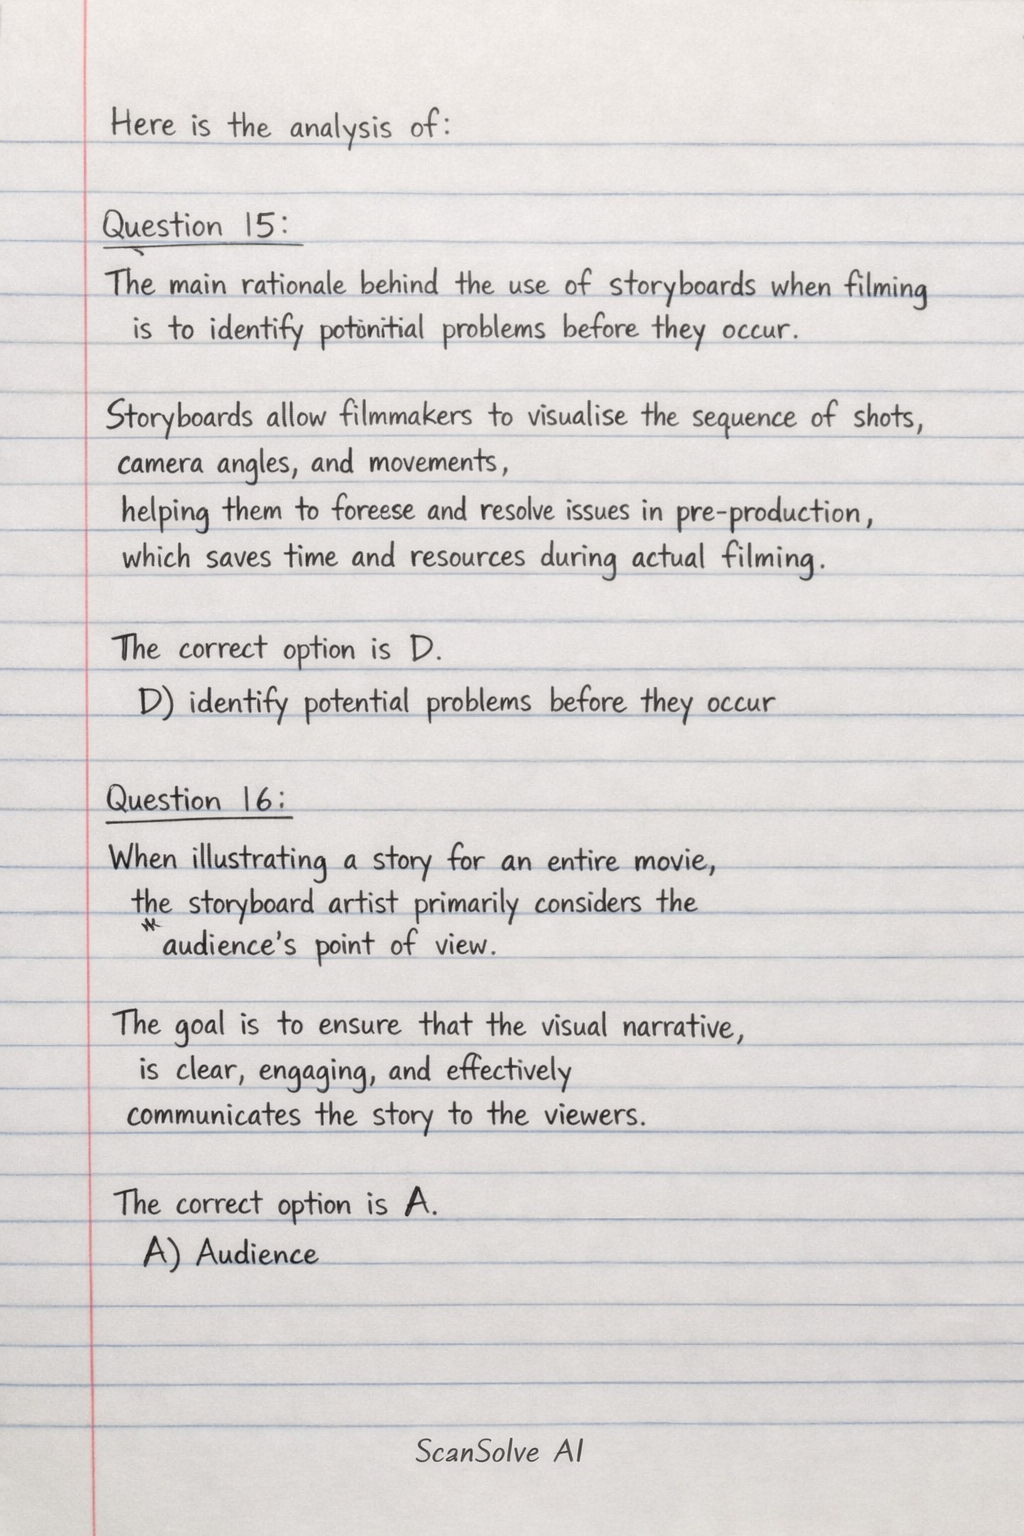 Here is the analysis of:
Question 15:
The main rationale behind the use of storyboards when filming
is to identify potönitial problems before they occur.
Storyboards allow filmmakers to visualise the sequence of shots,
camera angles, and movements,
helping them to foreese and resolve issues in pre-production,
which saves time and resources during actual filming.
The correct option is D.
D) identify potential problems before they occur
Question 16:
When illustrating a story for an entire movie,
the storyboard artist primarily considers the
audience's point of view.
The goal is to ensure that the visual narrative,
is clear, engaging, and effectively
communicates the story to the viewers.
The correct option is A.
A) Audience
ScanSolve AI